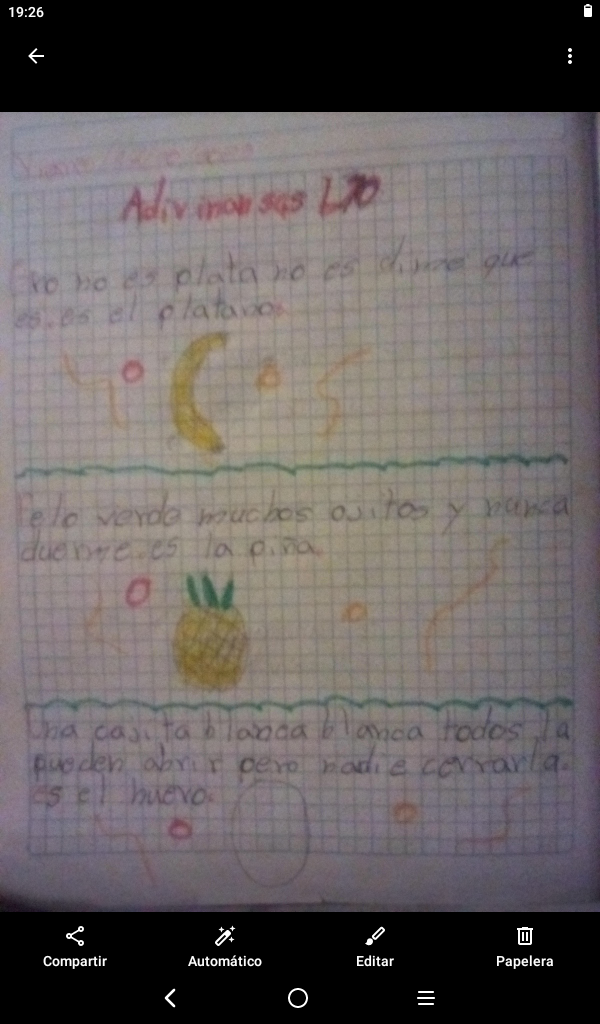 19:26
Adivinansas L70
Oro no es plata no es dime que
es. es el platano.
Pelo verde muchos ojitos y nunca
duerme. es la piña.
Una cajita blanca blanca todos la
pueden abrir pero nadie cerrarla.
es el huevo.
Compartir
Automático
Editar
Papelera